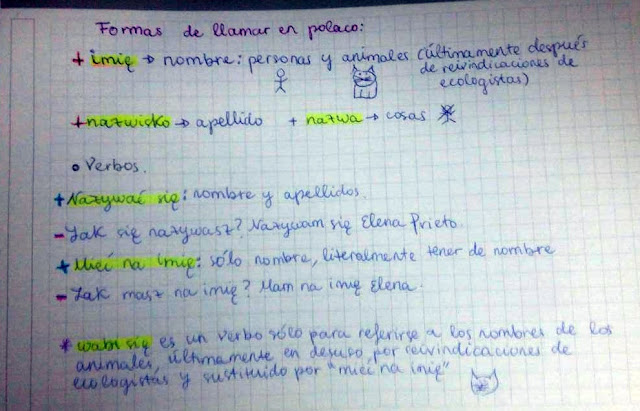 Formas de llamar en polaco:
+ imię → nombre: personas y animales (últimamente después
de reivindicaciones de
ecologistas)
+ nazwisko → apellido + nazwa → cosas
o Verbos.
+ Nazywać się: nombre y apellidos.
- Jak się nazywasz? Nazywam się Elena Prieto.
+ Mieć na imię: sólo nombre, literalmente tener de nombre
- Jak masz na imię? Mam na imię Elena.
* wabi się es un verbo sólo para referirse a los nombres de los
animales, últimamente en desuso por reivindicaciones de
ecologistas y sustituido por "mieć na imię"